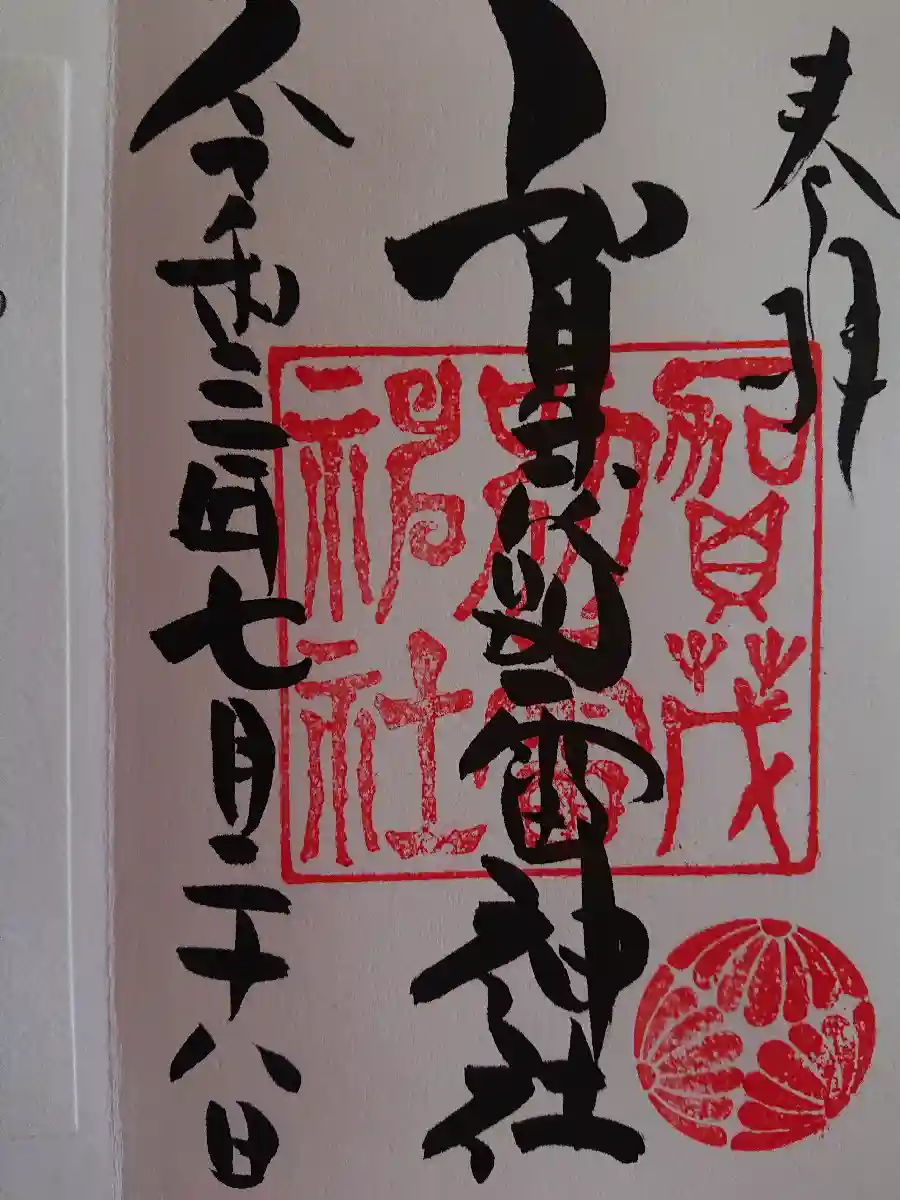 奉拝
賀茂別雷神社
令和三年七月二十八日
賀茂
別雷
神社